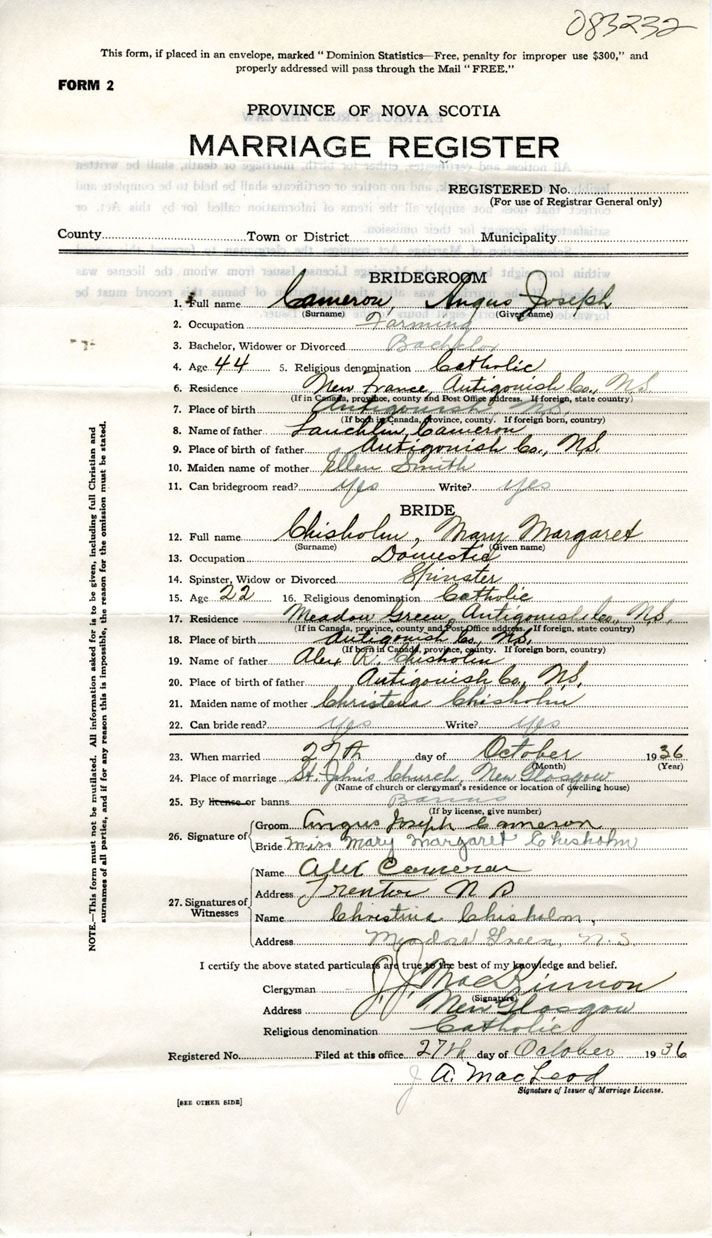 083232
This form, if placed in an envelope, marked "Dominion Statistics—Free, penalty for improper use $300," and
properly addressed will pass through the Mail "FREE."
FORM 2
PROVINCE OF NOVA SCOTIA
MARRIAGE REGISTER
REGISTERED No.
(For use of Registrar General only)
County Town or District Municipality
BRIDEGROOM
1. Full name Cameron, Angus Joseph
(Surname) (Given name)
2. Occupation Farming
3. Bachelor, Widower or Divorced Bachelor
4. Age 44 5. Religious denomination Catholic
6. Residence New France, Antigonish Co., N.S.
(If in Canada, province, county and Post Office address. If foreign, state country)
7. Place of birth Antigonish, N.S.
(If born in Canada, province, county. If foreign born, country)
8. Name of father Lauchlin Cameron
9. Place of birth of father Antigonish Co., N.S.
10. Maiden name of mother Ellen Smith
11. Can bridegroom read? Yes Write? Yes
BRIDE
12. Full name Chisholm, Mary Margaret
(Surname) (Given name)
13. Occupation Domestic
14. Spinster, Widow or Divorced Spinster
15. Age 22 16. Religious denomination Catholic
17. Residence Meadow Green, Antigonish Co., N.S.
(If in Canada, province, county and Post Office address. If foreign, state country)
18. Place of birth Antigonish Co., N.S.
(If born in Canada, province, county. If foreign born, country)
19. Name of father Alex R. Chisholm
20. Place of birth of father Antigonish Co., N.S.
21. Maiden name of mother Christena Chisholm
22. Can bride read? Yes Write? Yes
23. When married 27th day of October 1936
(Month) (Year)
24. Place of marriage St. John's Church, New Glasgow
(Name of church or clergyman's residence or location of dwelling house)
25. By license or banns Banns
(If by license, give number)
26. Signature of Groom Angus Joseph Cameron
Bride Miss Mary Margaret Chisholm
27. Signatures of Witnesses
Name Alex Cameron
Address Trenton N S
Name Christina Chisholm,
Address Meadow Green, N.S.
I certify the above stated particulars are true to the best of my knowledge and belief.
Clergyman J. J. MacKinnon
(Signature)
Address New Glasgow
Religious denomination Catholic
Registered No. Filed at this office 27th day of October 1936
J A. MacLeod
Signature of Issuer of Marriage License.
[SEE OTHER SIDE]
NOTE.—This form must not be mutilated. All information asked for is to be given, including full Christian and
surnames of all parties, and if for any reason this is impossible, the reason for the omission must be stated.